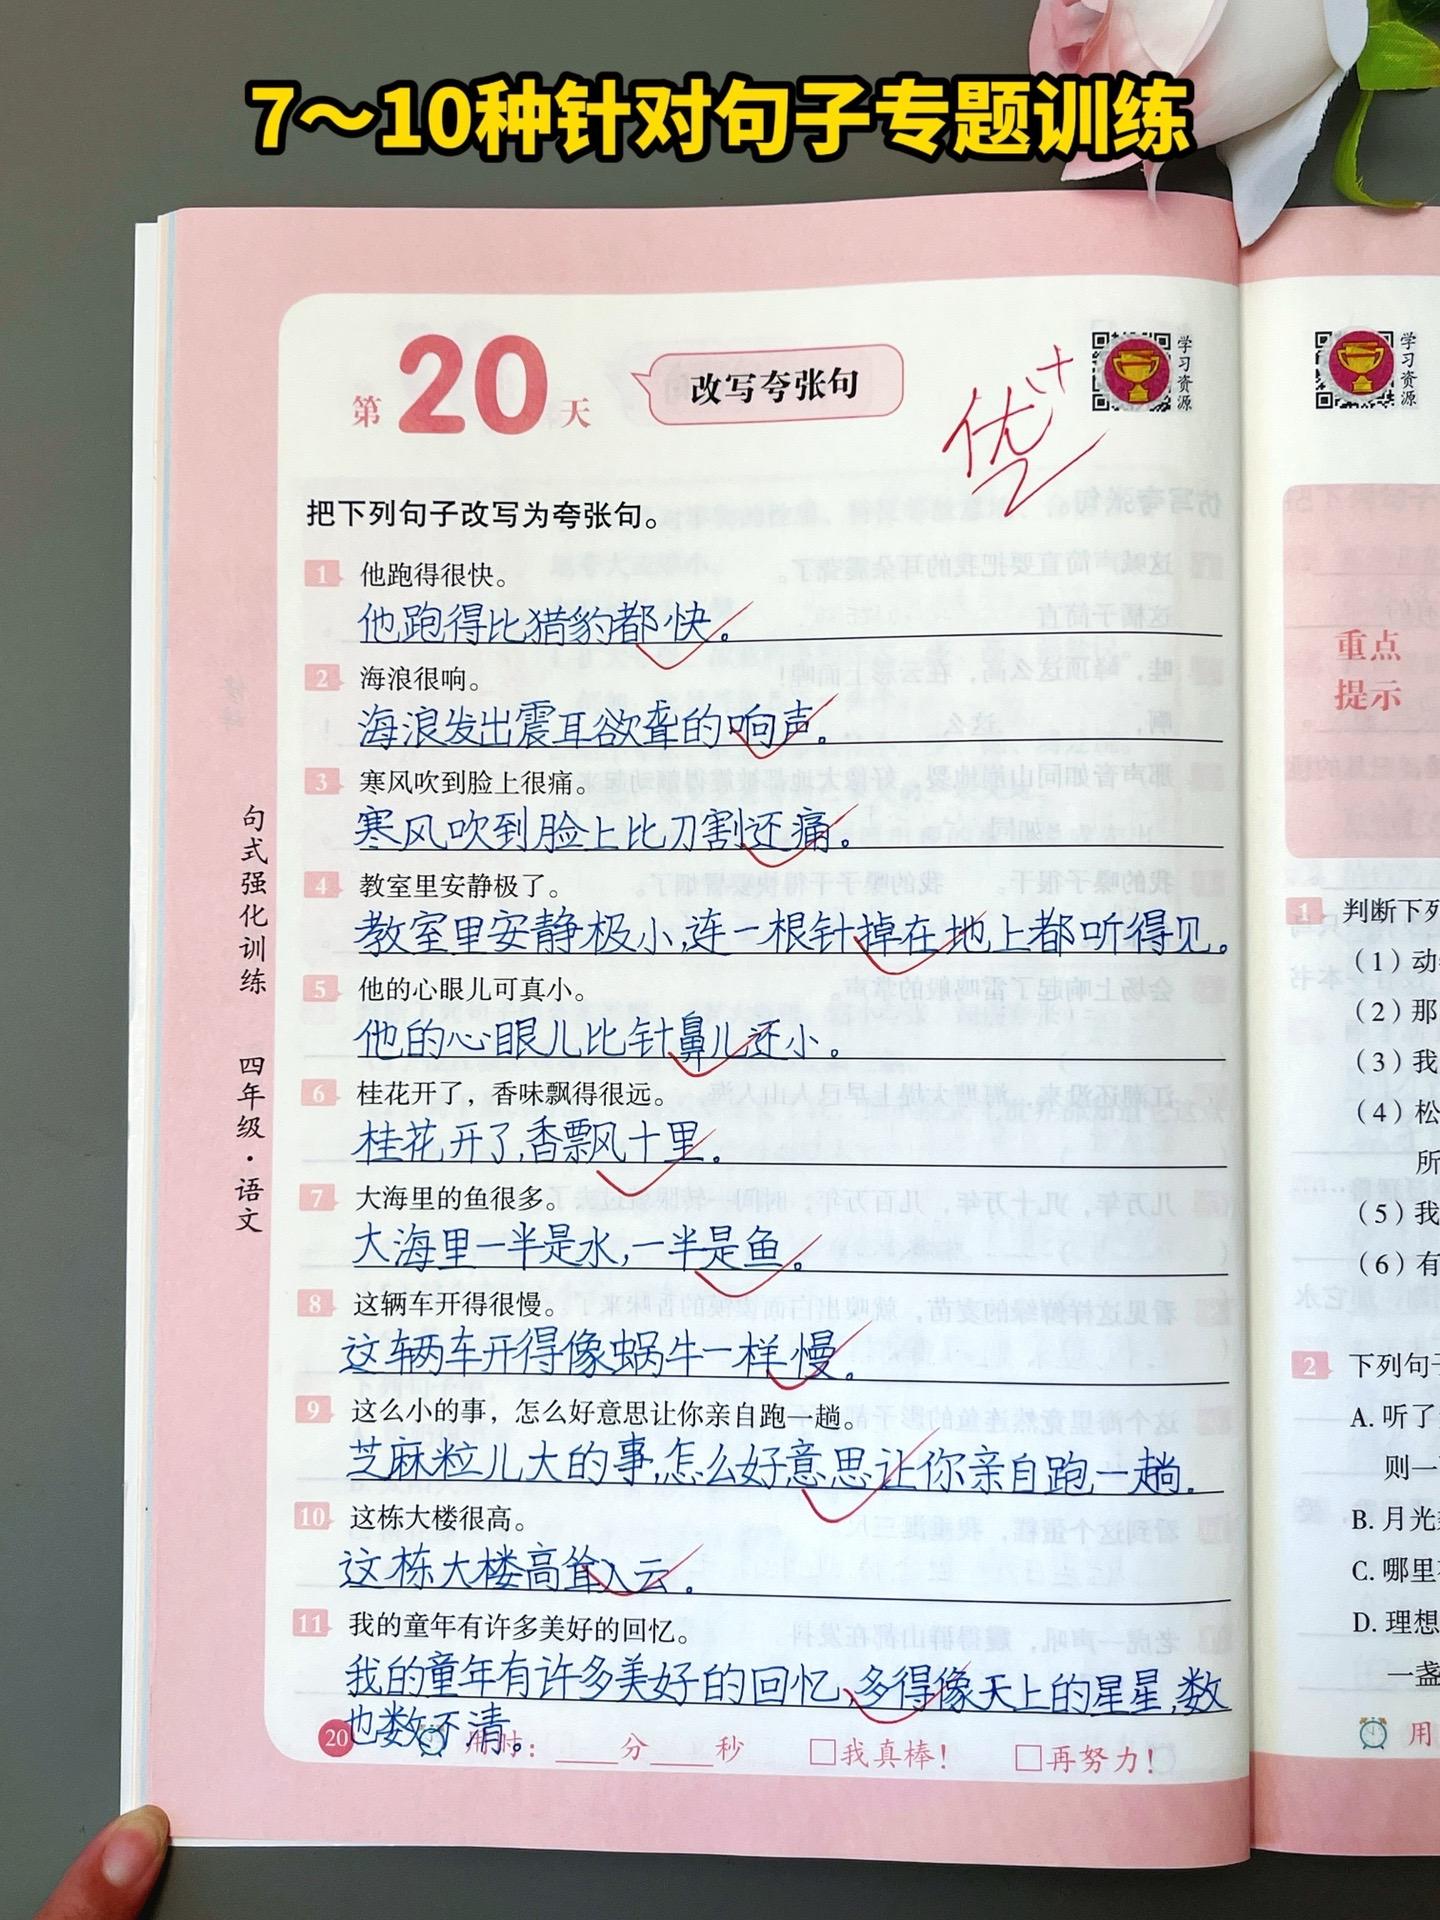 7～10种针对句子专题训练
第20天
改写夸张句
优++
学习资源
学习资源
把下列句子改写为夸张句。
1 他跑得很快。
他跑得比猎豹都快。
2 海浪很响。
海浪发出震耳欲聋的响声。
3 寒风吹到脸上很痛。
寒风吹到脸上比刀割还痛。
4 教室里安静极了。
教室里安静极小,连一根针掉在地上都听得见。
5 他的心眼儿可真小。
他的心眼儿比针鼻儿还小。
6 桂花开了，香味飘得很远。
桂花开了,香飘十里。
7 大海里的鱼很多。
大海里一半是水,一半是鱼。
8 这辆车开得很慢。
这辆车开得像蜗牛一样慢。
9 这么小的事，怎么好意思让你亲自跑一趟。
芝麻粒儿大的事,怎么好意思让你亲自跑一趟.
10 这栋大楼很高。
这栋大楼高耸入云。
11 我的童年有许多美好的回忆。
我的童年有许多美好的回忆,多得像天上的星星,数
也数不清。
20 用时：____分____秒 □我真棒！ □再努力！
句式强化训练 四年级·语文
重点
提示
1 判断下列
（1）动
（2）那
（3）我
（4）松
所
（5）我
（6）有
2 下列句子
A. 听了
则一
B. 月光
C. 哪里
D. 理想
一盏
用